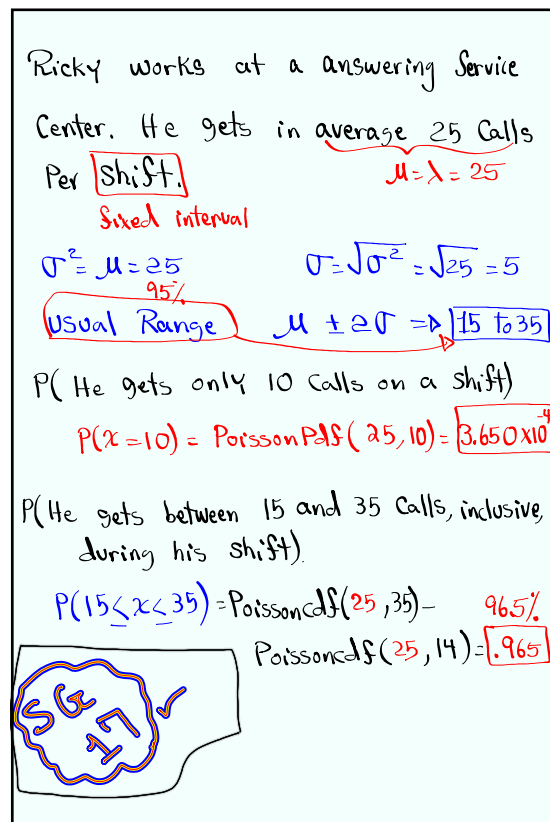 Ricky works at a answering Service
Center. He gets in average 25 Calls
Per Shift.
μ = λ = 25
fixed interval
σ² = μ = 25
σ = √σ² = √25 = 5
95%
usual Range
μ ± 2σ ⇒ 15 to 35
P( He gets only 10 Calls on a Shift)
P(x = 10) = PoissonPdf( 25, 10) = 3.650 x10⁻⁴
P(He gets between 15 and 35 Calls, inclusive,
during his shift).
P(15 ≤ x ≤ 35) = Poissoncdf(25, 35) –
96.5%
Poissoncdf(25, 14) = .965
SG
17